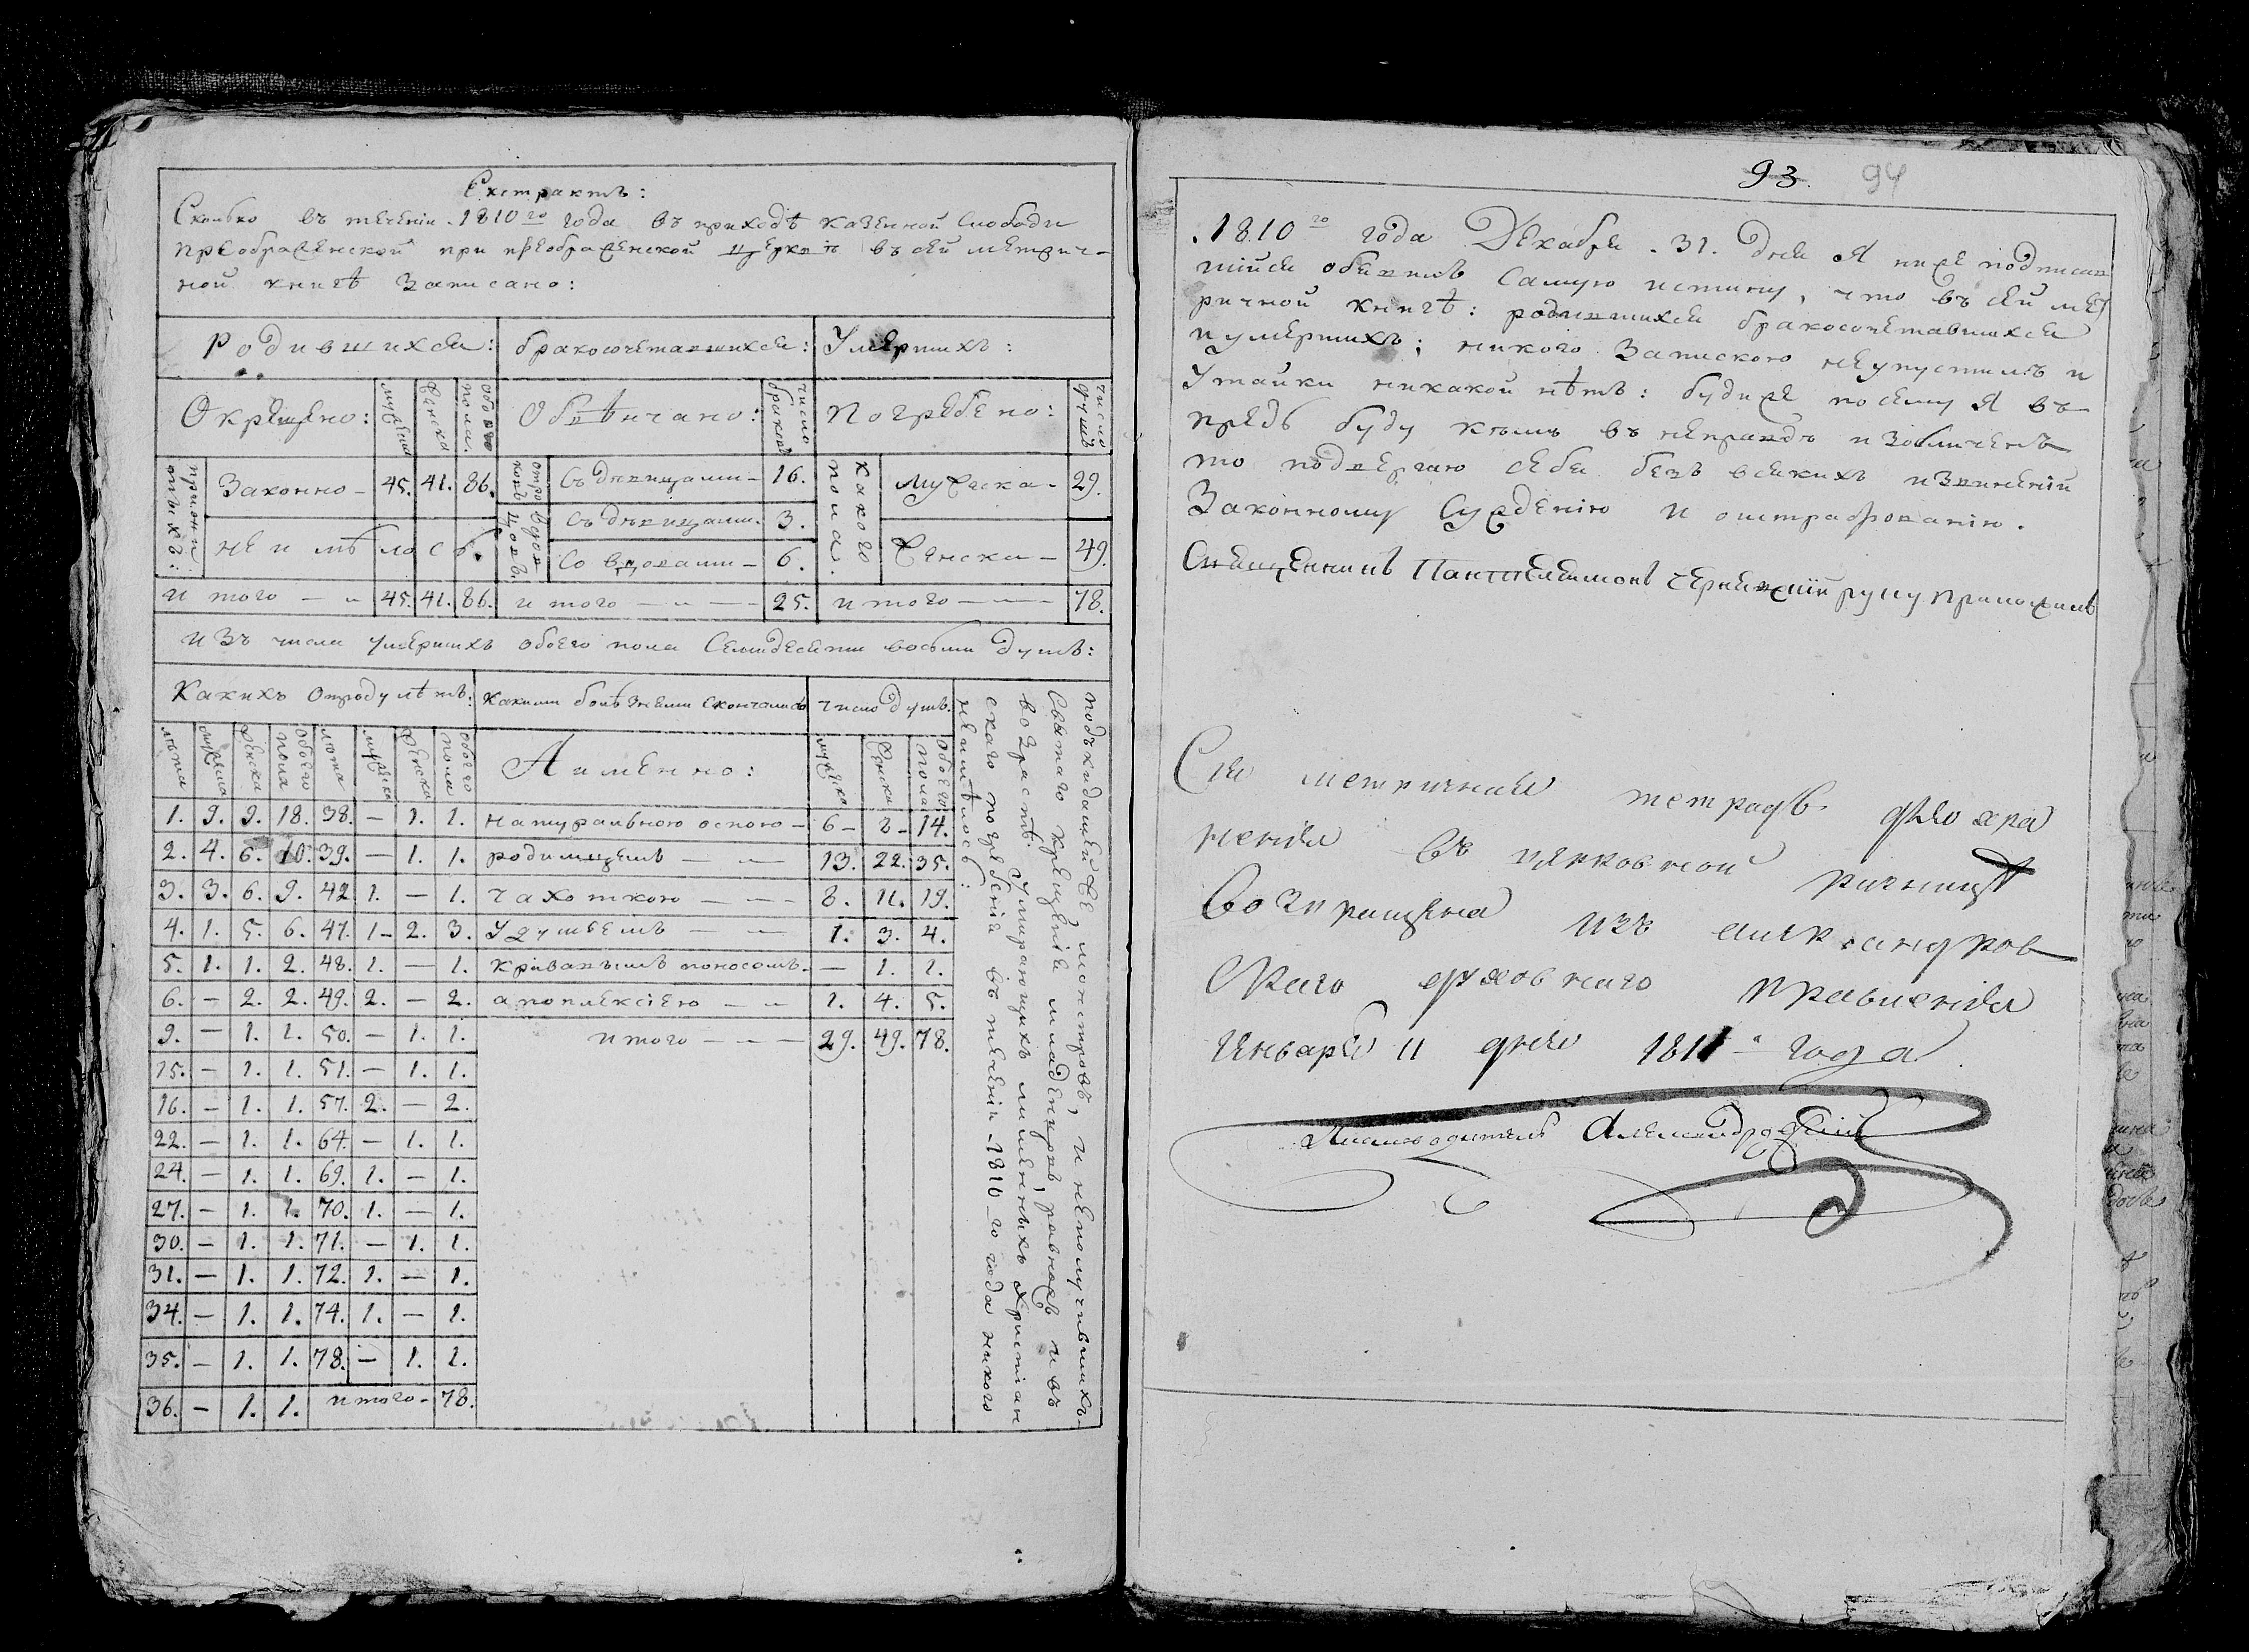 Екстрактъ:
Сколько въ теченіи 1810го года въ приходѣ казенной слободи
Преображенской при преображенской церквѣ въ сей метрич-
ной книгѣ записано:
Родившихся: бракосочетавшихся: Умершихъ:
Окрещено: мужеска женска обоего пола. Обвѣнчано: число браковъ Погребено: число душъ
Законно - 45. 41. 86. съ дѣвицами - 16. какого пола. Мужеска - 29.
съ дѣвицами. 3.
не имѣлось. Со вдовами - 6. Женска - 49.
и того - - 45. 41. 86. и того - - - 25. и того - - - 78.
изъ числа умершихъ обоего пола семидесяти восьми душъ:
Какихъ отроду лѣтъ: Какими болѣзнями скончались число душъ.
лѣта мужеска женска обоего пола лѣта мужеска женска обоего пола Аименно: мужеска женска обоего пола
1. 9. 9. 18. 38. — 1. 1. натуральною оспою - 6 - 8 - 14.
2. 4. 6. 10. 39. — 1. 1. родимцемъ — — 13. 22. 35.
3. 3. 6. 9. 42 1. — 1. чахоткою — — — 8. 11. 19.
4. 1. 5. 6. 47. 1 - 2. 3. Удушьемъ — — 1. 3. 4.
5. 1. 1. 2. 48. 1. — 1. кривавымъ поносомъ. — 1. 1.
6. — 2. 2. 49. 2. — 2. апоплексіею — — 1. 4. 5.
9. — 1. 1. 50. — 1. 1. итого — — — 29. 49. 78.
15. — 1. 1. 51. — 1. 1.
16. — 1. 1. 57. 2. — 2.
22. — 1. 1. 64. — 1. 1.
24. — 1. 1. 69. 1. — 1.
27. — 1. 1. 70. 1. — 1.
30. — 1. 1. 71. — 1. 1.
31. — 1. 1. 72. 1. — 1.
34. — 1. 1. 74. 1. — 1.
35. — 1. 1. 78. — 1. 1.
36. — 1. 1. итого - 78.
подъкидашей же монстровъ, и неполучившихъ
Святаго крещенія младенцовъ, равножъ и въ
возрастѣ умирающихъ лишенныхъ христиан
скаго погребенія въ теченіи 1810_го года никого
неимѣлось:
93. 94
1810го года Декабря 31. дня Я ниже подписав
шійся обявилъ самую истину, что въ сей мет
ричной книгѣ: родившихся бракосочетавшихся
и умершихъ; никого запискою неупустилъ и
Утайки никакой нѣтъ: будиже посему Я въ
предь буду кѣмъ въ неправдѣ изобличенъ
то подвергаю себя безъ всякихъ извиненій
Законному сужденію и оштрафованію.
Священникъ Пантелеимонъ руку приложилъ
Сія метричная тетрадь для хра
ненія въ церковной ризницѣ
возвращена изъ александров
скаго духовнаго правленія
Января 11 дня 1811го года